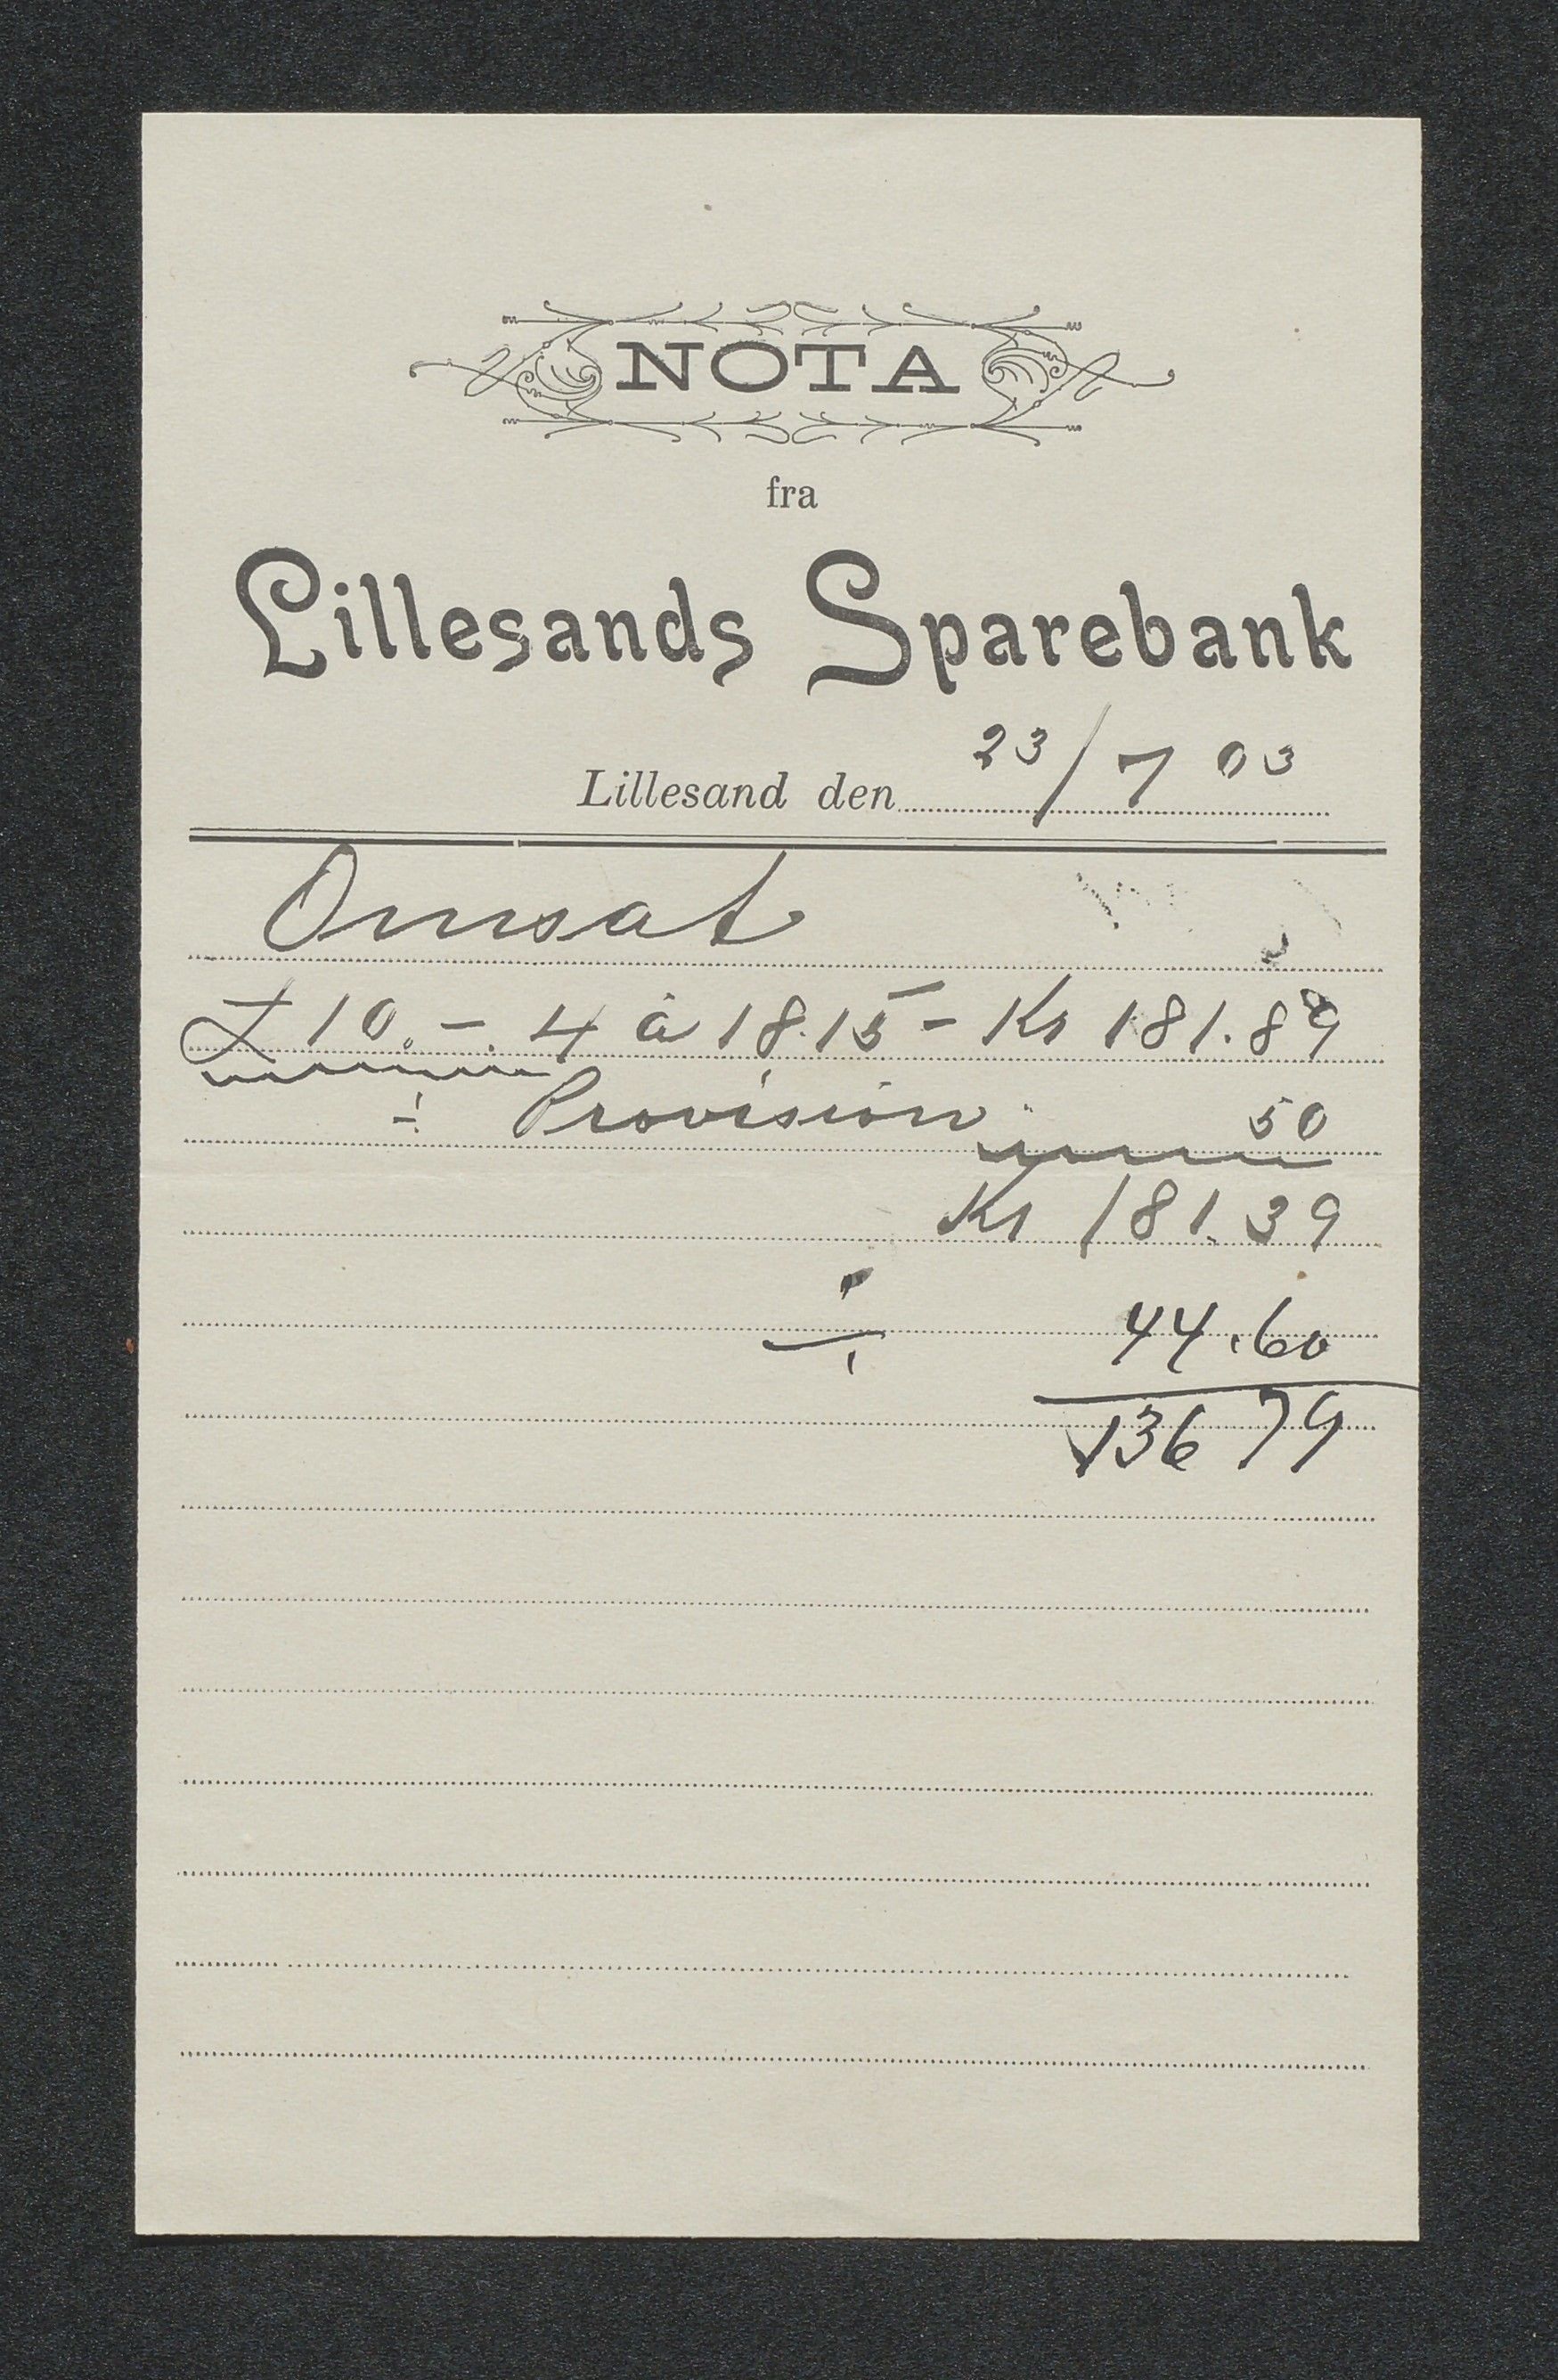 NOTA
fra
Lillesands Sparebank
Lillesand den 23/7 03
Omsat
£ 10.-.4 à 18.15 - Kr 181.89
÷ Provision 50
Kr 181.39
÷ 44.60
136 79